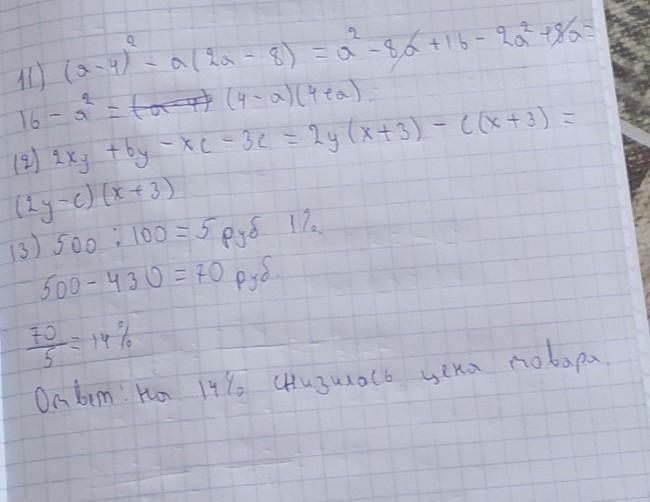 11) (a-4)² - a(2a - 8) = a² - 8a + 16 - 2a² + 8a =
16 - a² = (4 - a)(4 + a).
12) 2xy + 6y - xc - 3c = 2y(x+3) - c(x+3) =
(2y - c)(x + 3)
13) 500 : 100 = 5 руб. 1%.
500 - 430 = 70 руб.
70/5 = 14%
Ответ: на 14% снизилась цена товара.